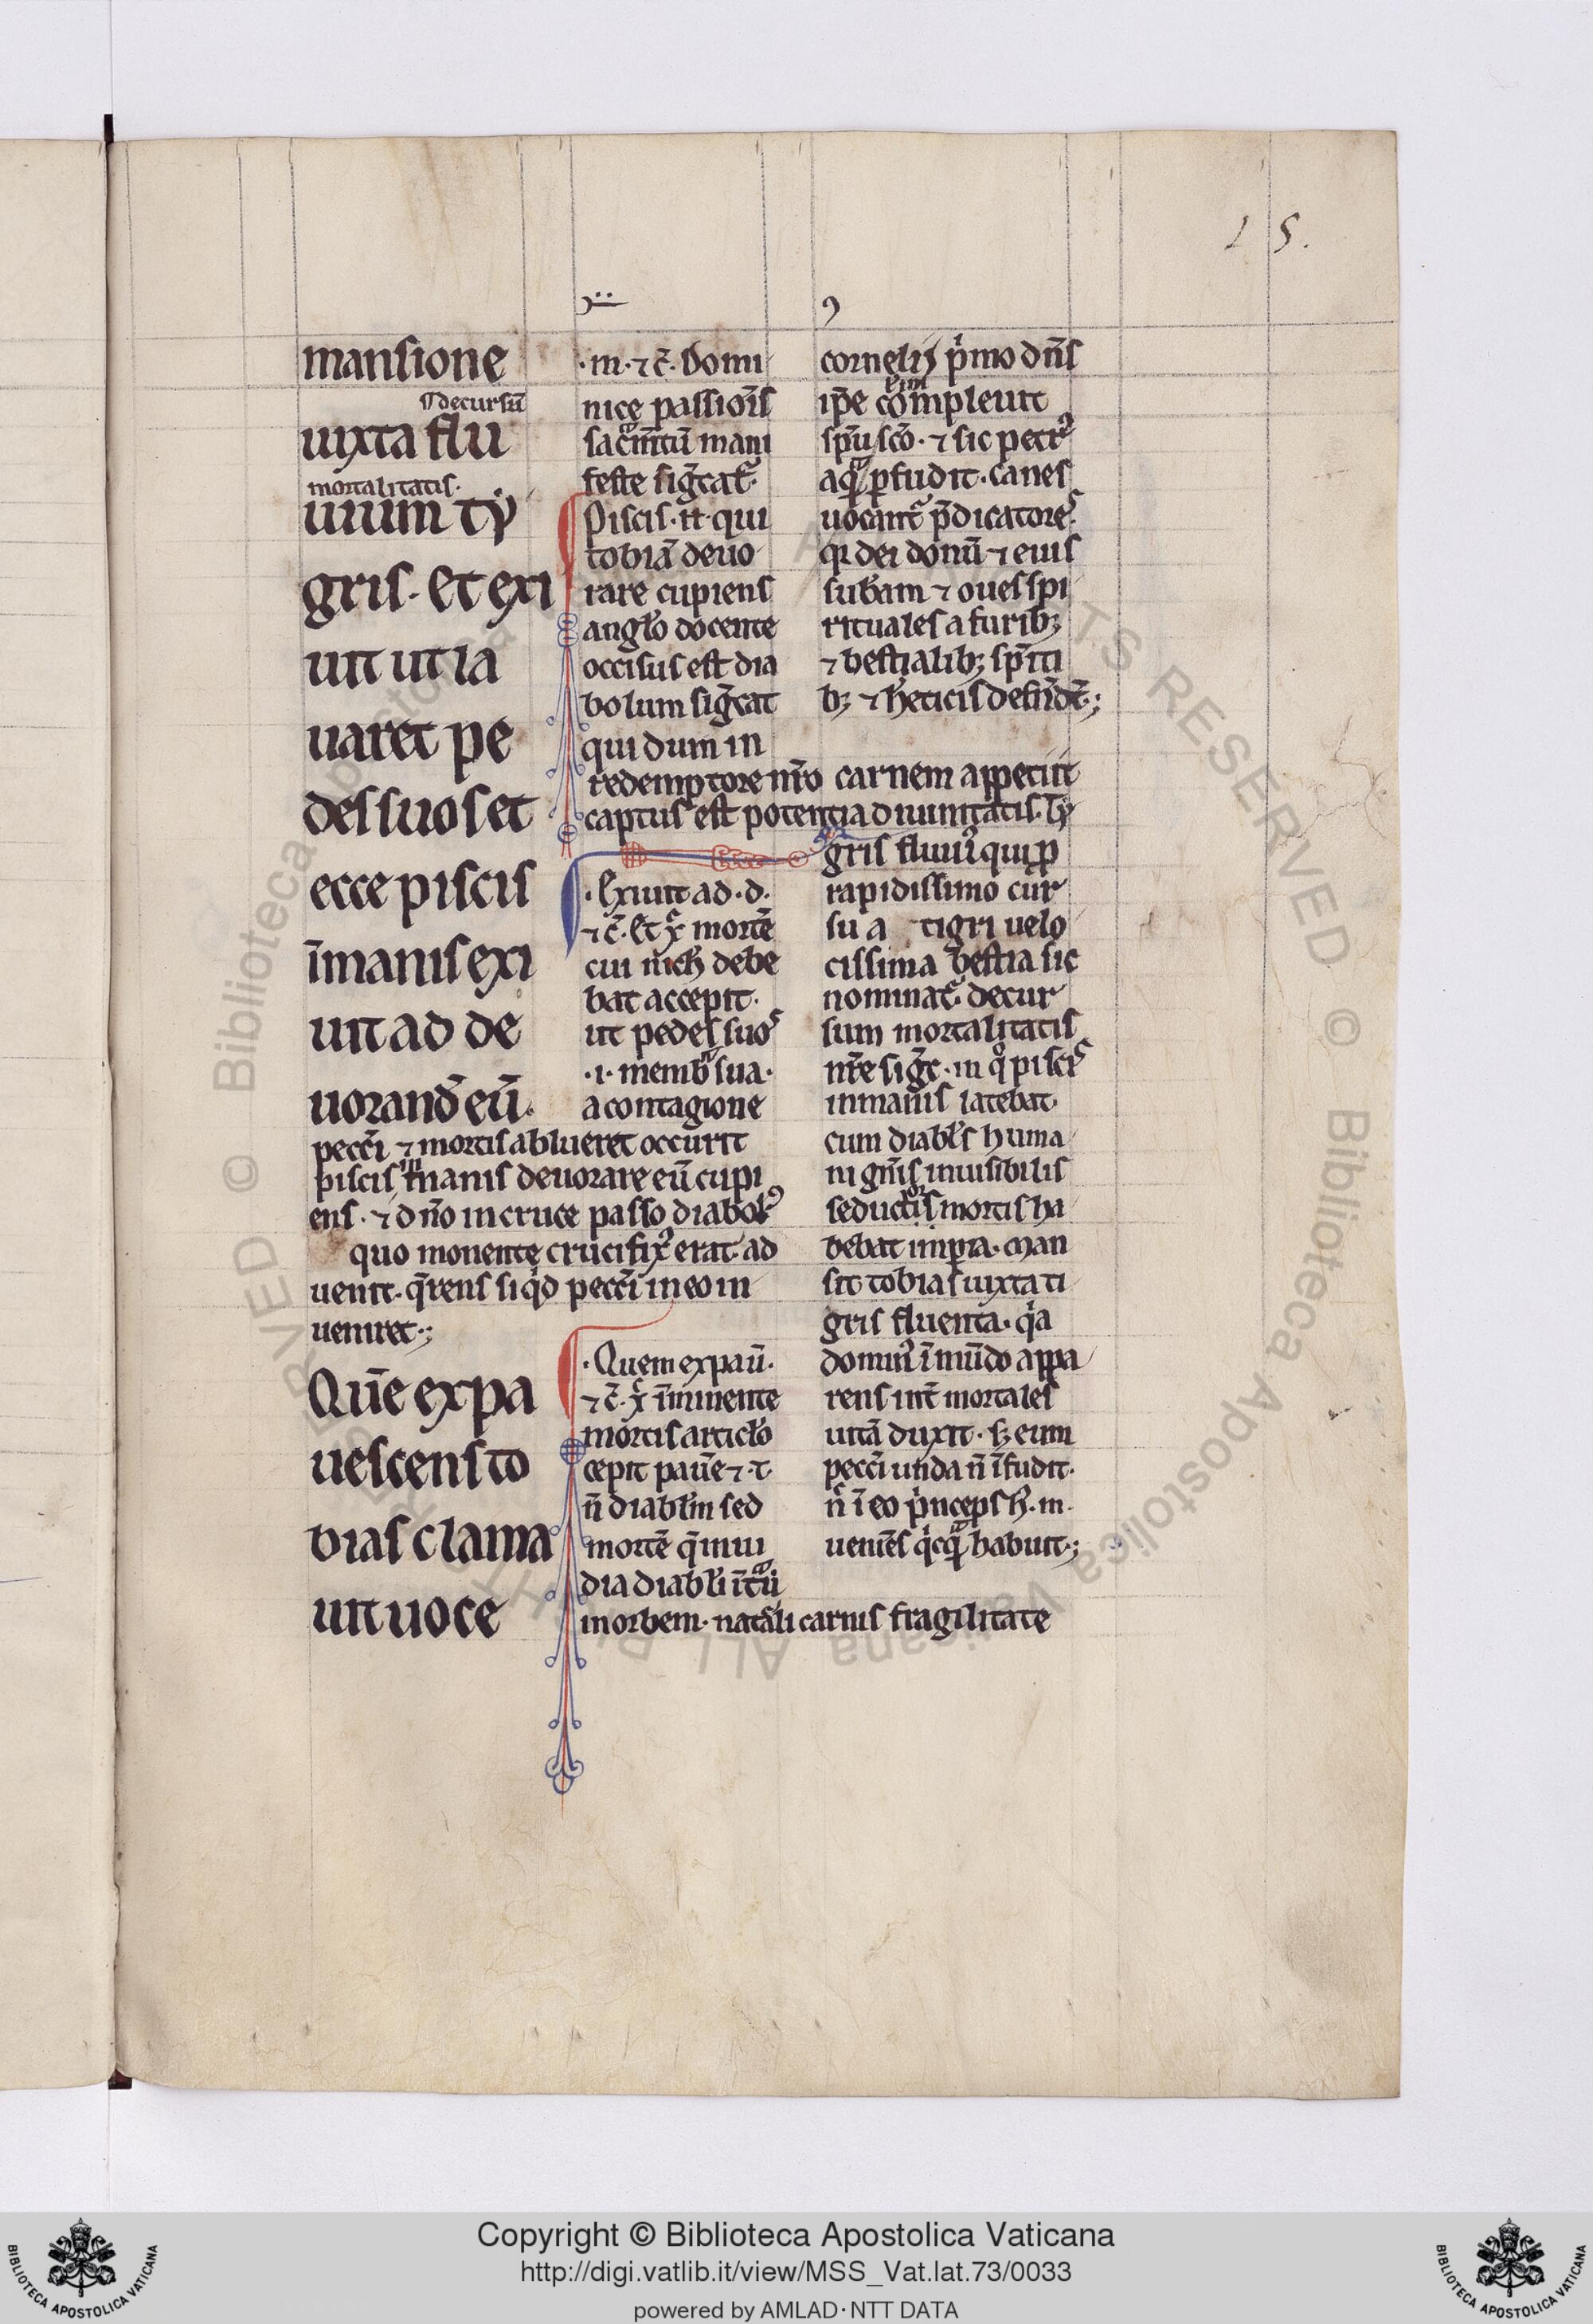 15.
mansione
decursũ
iuxta flu
mortalitatis.
uium ty
gris. Et exi
uit ut la
uaret pe
des suos et
ecce piscis
ĩmanis exi
uit ad de
uorand̃ eũ.
pecc̃i ⁊ mortis ablueret occurrit
piscis inmanis deuorare eũ cupi
ens. ⁊ dño in cruce passo diabolꝰ
quo monente crucifixꝰ erat. ad
uenit. q̃rens si qd peccĩ in eo in
ueniret.;
Quẽ expa
uescens to
bias clama
uit uoce
.m. ⁊ c̃. Domi
nice passiõis
sacm̃tũ mani
feste sig̃cat᷑.
Piscis. n̄. qui
tobiã deuo
rare cupiens
anglo docente
occisus est dia
bolum sig̃cat
qui dum in
redemptore nr̃o carnem appetiit
captus est potentia diuinitatis. Ty
.Exiuit ad .d.
⁊ c̃. Et xp̃c mortẽ
cui nich debe
bat accepit.
ut pedes suos
.i. membra sua.
a contagione
.Quem expaũ.
⁊ c̃. xp̃c ĩminente
mortis articlo
cepit pauẽ ⁊ t.
ñ diablm̃ sed
mortẽ q̃ inui
dia diabli ĩtrauit
in orbem. nat̃ali carnis fragilitate
cornelij p̾mo dñs
ip̃e eum compleuit
spũ scõ. ⁊ sic petrꝰ
aqua ꝑfudit. Canes
uocant᷑ p̃dicatores.
qͥ dei donũ ⁊ eius
sub̃am ⁊ oues spi
rituales a furibꝫ
⁊ bestialibꝫ sp̃iti
bꝫ ⁊ h̾eticis defñdẽt.;
gris fluuiꝰ qui ꝓ
rapidissimo cur
su a tigri uelo
cissima bestia sic
nominat᷑. decur
sum mortalitatis
nr̃e sig̃c. in qͦ piscis
inmanis latebat.
cum diabl̾s huma
ni gñis inuisibilis
seductor̾is mortis ha
bebat imp̾ia. Man
sit tobias iuxta ti
gris fluenta. qͥa
dominꝰ ĩ mũdo appa
rens int̾ mortales
uitã duxit. sꝫ eum
peccĩ unda ñ ĩfudit.
ñ ĩ eo p̾nceps h̾. m.
ueniẽs qͥcqͣ habuit.;
Copyright © Biblioteca Apostolica Vaticana
http://digi.vatlib.it/view/MSS_Vat.lat.73/0033
powered by AMLAD·NTT DATA